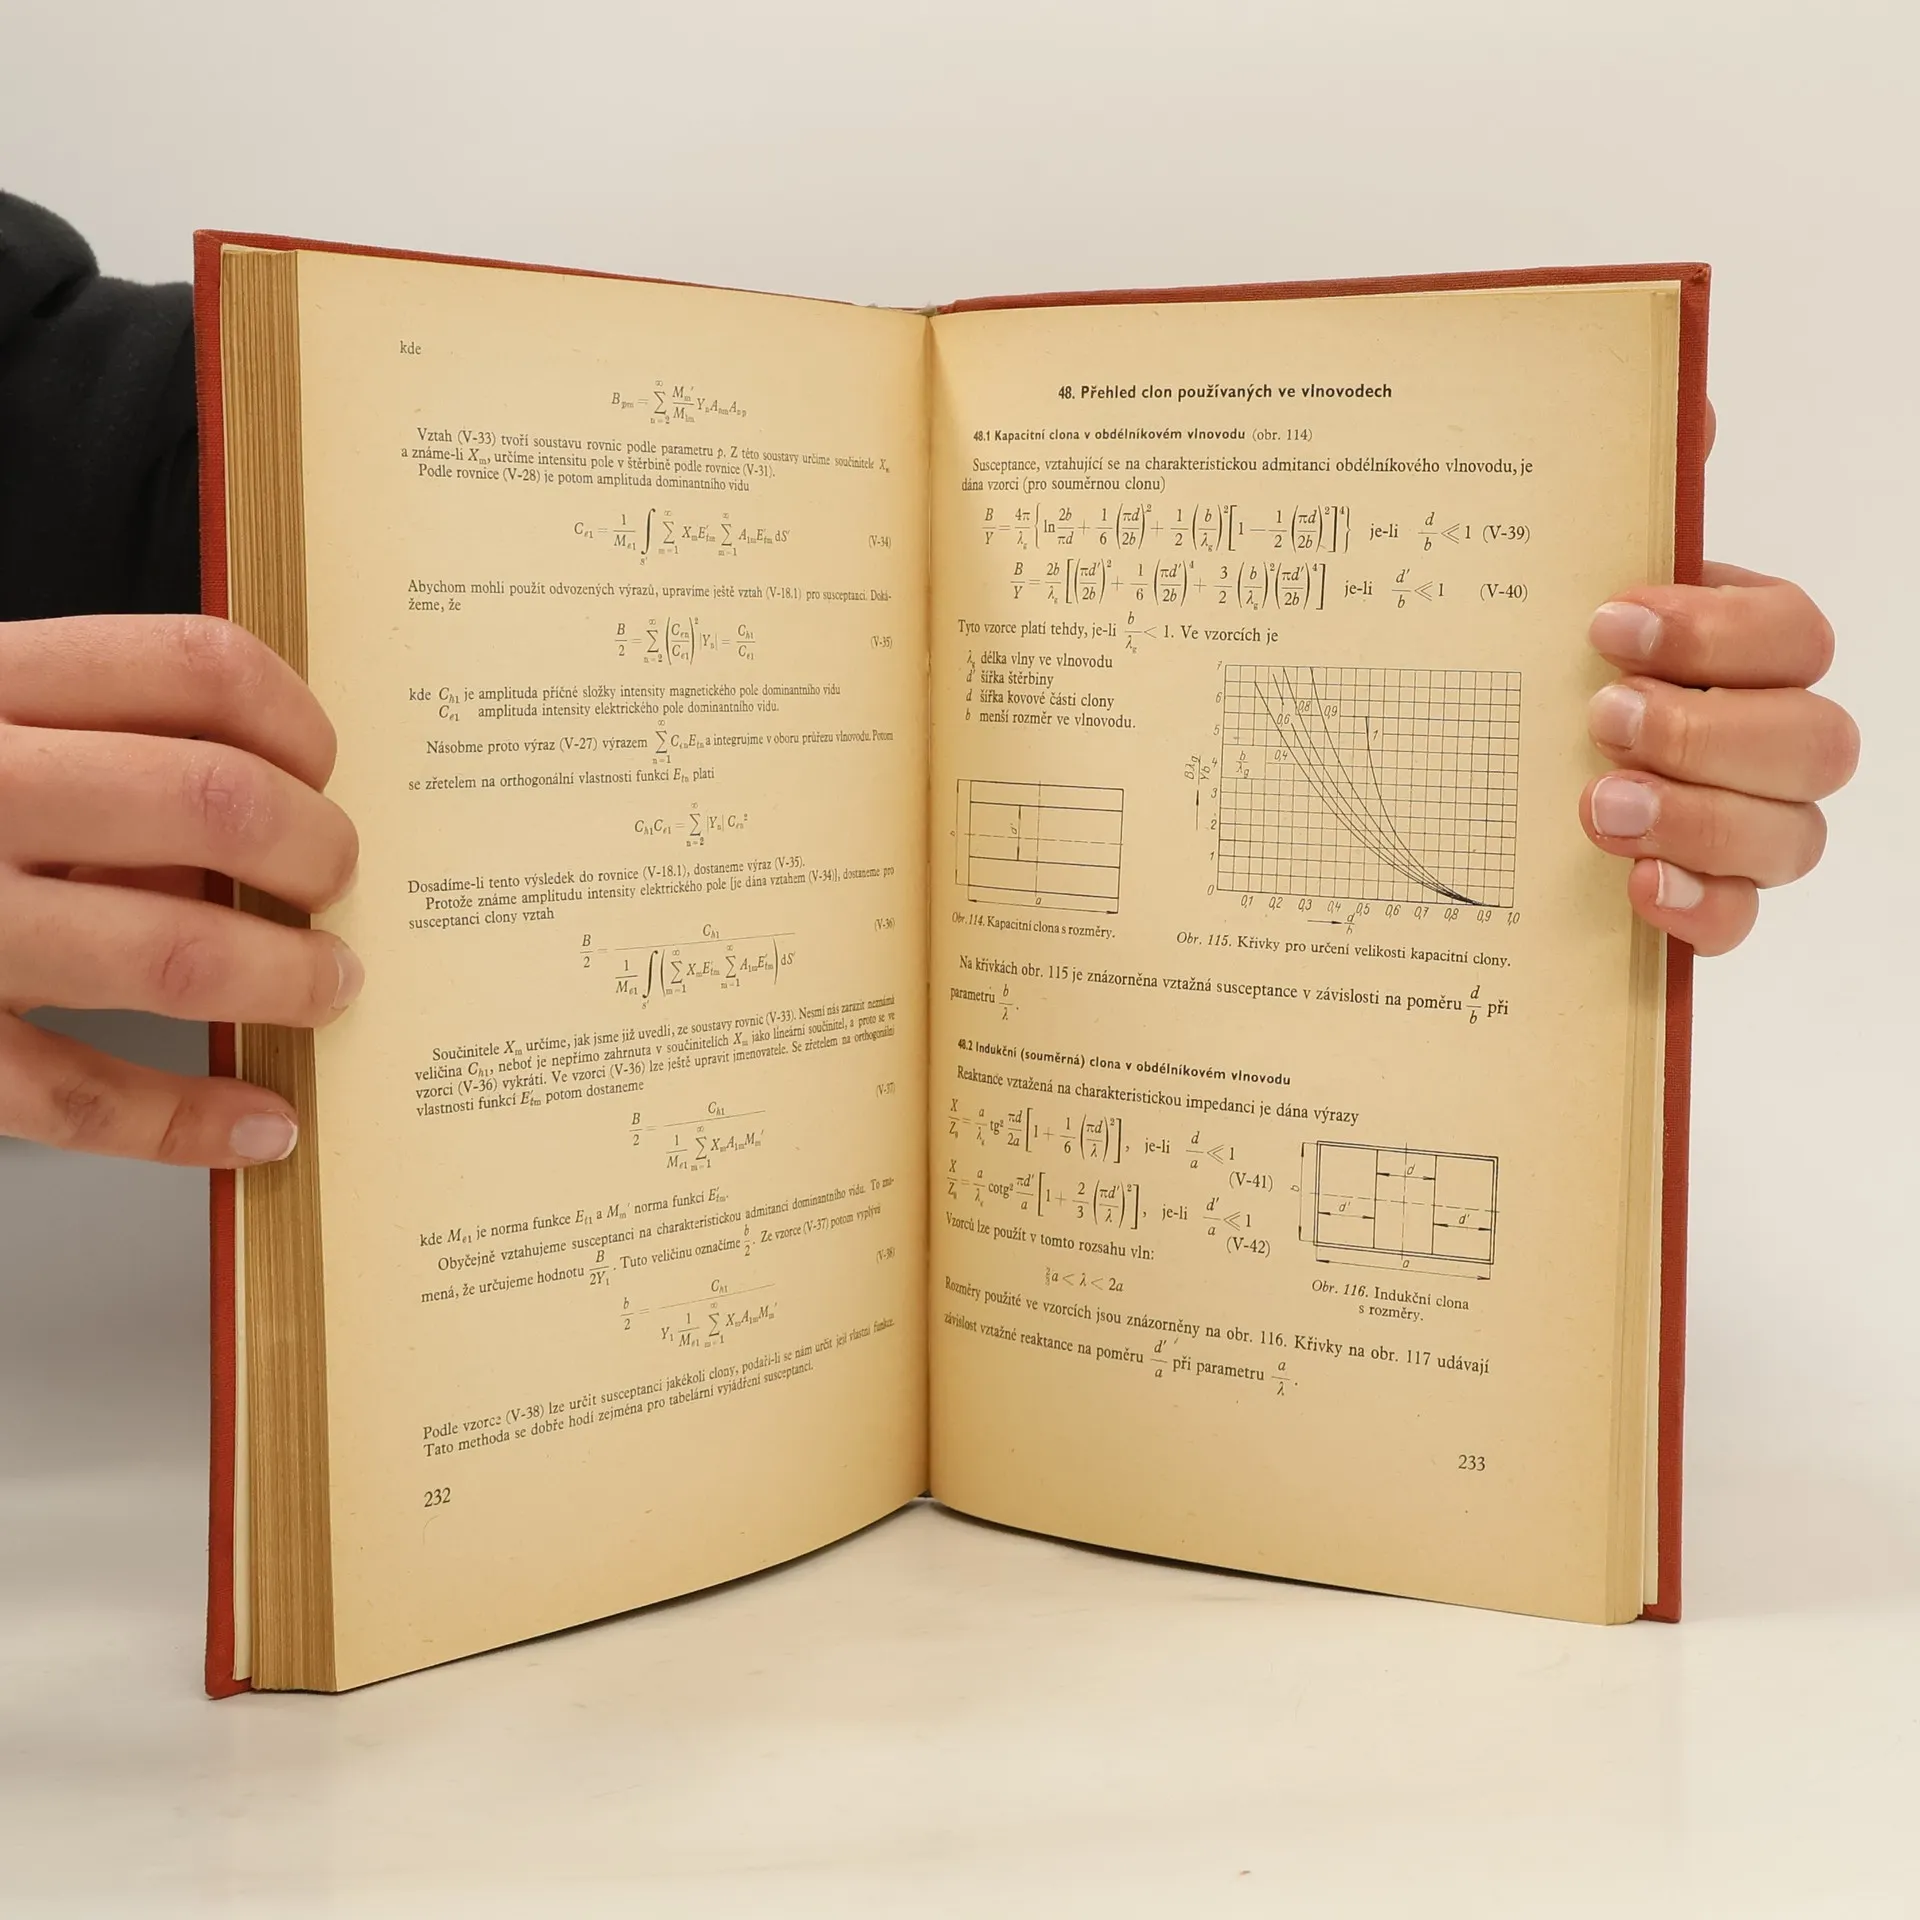 kde
B_pm = ∑_{n=2}^{∞} M_m′/M_1m Y_n A_nm A_np
Vztah (V-33) tvoří soustavu rovnic podle parametru p. Z této soustavy určíme součinitele X_n
a známe-li X_m, určíme intensitu pole v štěrbině podle rovnice (V-31).
Podle rovnice (V-28) je potom amplituda dominantního vidu
C_e1 = 1/M_e1 ∫_{s′} ∑_{m=1}^{∞} X_m E′_tm ∑_{m=1}^{∞} A_1m E′_tm dS′ (V-34)
Abychom mohli použít odvozených výrazů, upravíme ještě vztah (V-18.1) pro susceptanci. Doká-
žeme, že
B/2 = ∑_{n=2}^{∞} (C_en/C_e1)² |Y_n| = C_h1/C_e1 (V-35)
kde C_h1 je amplituda příčné složky intensity magnetického pole dominantního vidu
C_e1 amplituda intensity elektrického pole dominantního vidu.
Násobme proto výraz (V-27) výrazem ∑_{n=1}^{∞} C_en E_tn a integrujme v oboru průřezu vlnovodu. Potom
se zřetelem na orthogonální vlastnosti funkcí E_tn platí
C_h1 C_e1 = ∑_{n=2}^{∞} |Y_n| C_en²
Dosadíme-li tento výsledek do rovnice (V-18.1), dostaneme výraz (V-35).
Protože známe amplitudu intensity elektrického pole [je dána vztahem (V-34)], dostaneme pro
susceptanci clony vztah
B/2 = C_h1 / (1/M_e1 ∫_{s′} (∑_{m=1}^{∞} X_m E′_tm ∑_{m=1}^{∞} A_1m E′_tm) dS′) (V-36)
Součinitele X_m určíme, jak jsme již uvedli, ze soustavy rovnic (V-33). Nesmí nás zarazit neznámá
veličina C_h1, neboť je nepřímo zahrnuta v součinitelích X_m jako lineární součinitel, a proto se ve
vzorci (V-36) vykrátí. Ve vzorci (V-36) lze ještě upravit jmenovatele. Se zřetelem na orthogonální
vlastnosti funkcí E′_tm potom dostaneme
B/2 = C_h1 / (1/M_e1 ∑_{m=1}^{∞} X_m A_1m M_m′) (V-37)
kde M_e1 je norma funkce E_t1 a M_m′ norma funkcí E′_tm.
Obyčejně vztahujeme susceptanci na charakteristickou admitanci dominantního vidu. To zna-
mená, že určujeme hodnotu B/2Y₁. Tuto veličinu označíme b/2. Ze vzorce (V-37) potom vyplývá
b/2 = C_h1 / (Y₁ 1/M_e1 ∑_{m=1}^{∞} X_m A_1m M_m′) (V-38)
Podle vzorce (V-38) lze určit susceptanci jakékoli clony, podaří-li se nám určit její vlastní funkce.
Tato methoda se dobře hodí zejména pro tabelární vyjádření susceptancí.
232
48. Přehled clon používaných ve vlnovodech
48.1 Kapacitní clona v obdélníkovém vlnovodu (obr. 114)
Susceptance, vztahující se na charakteristickou admitanci obdélníkového vlnovodu, je
dána vzorci (pro souměrnou clonu)
B/Y = 4π/λ_g {ln 2b/πd + 1/6 (πd/2b)² + 1/2 (b/λ_g)² [1 − 1/2 (πd/2b)²]⁴} je-li d/b ≪ 1 (V-39)
B/Y = 2b/λ_g [(πd′/2b)² + 1/6 (πd′/2b)⁴ + 3/2 (b/λ_g)² (πd′/2b)⁴] je-li d′/b ≪ 1 (V-40)
Tyto vzorce platí tehdy, je-li b/λ_g < 1. Ve vzorcích je
λ_g délka vlny ve vlnovodu
d′ šířka štěrbiny
d šířka kovové části clony
b menší rozměr ve vlnovodu.
b
d′
a
Obr. 114. Kapacitní clona s rozměry.
Bλg/Yb
7
6
5
4
3
2
1
0
b/λg
0,4
0,6
0,8
0,9
1
0,1 0,2 0,3 0,4 0,5 0,6 0,7 0,8 0,9 1,0
d/b
Obr. 115. Křivky pro určení velikosti kapacitní clony.
Na křivkách obr. 115 je znázorněna vztažná susceptance v závislosti na poměru d/b při
parametru b/λ.
48.2 Indukční (souměrná) clona v obdélníkovém vlnovodu
Reaktance vztažená na charakteristickou impedanci je dána výrazy
X/Z₀ = a/λ_g tg² πd/2a [1 + 1/6 (πd/λ)²], je-li d/a ≪ 1
(V-41)
X/Z₀ = a/λ_g cotg² πd′/a [1 + 2/3 (πd′/λ)²], je-li d′/a ≪ 1
(V-42)
Vzorců lze použít v tomto rozsahu vln:
⅔a < λ < 2a
b
d
d′
d′
a
Obr. 116. Indukční clona
s rozměry.
Rozměry použité ve vzorcích jsou znázorněny na obr. 116. Křivky na obr. 117 udávají
závislost vztažné reaktance na poměru d′/a při parametru a/λ.
233